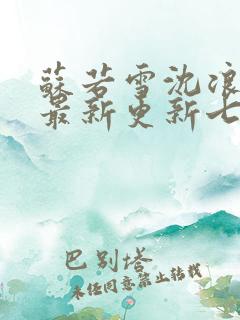 蘇若雪沈浪
最新更新七
巴别塔
未经同意禁止转载